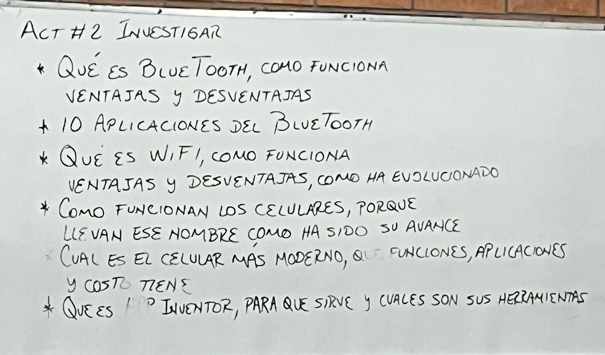 ACT #2 INVESTIGAR
* QUÉ ES BLUETOOTH, COMO FUNCIONA
VENTAJAS Y DESVENTAJAS
* 10 APLICACIONES DEL BLUETOOTH
* QUÉ ES WIFI, COMO FUNCIONA
VENTAJAS Y DESVENTAJAS, COMO HA EVOLUCIONADO
* COMO FUNCIONAN LOS CELULARES, PORQUE
LLEVAN ESE NOMBRE COMO HA SIDO SU AVANCE
* CUAL ES EL CELULAR MÁS MODERNO, QUE FUNCIONES, APLICACIONES
Y COSTO TIENE
* QUE ES APP INVENTOR, PARA QUE SIRVE Y CUALES SON SUS HERRAMIENTAS